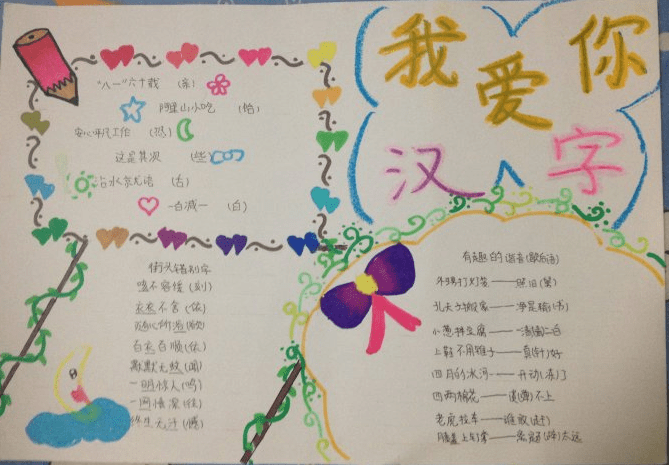 我爱你
汉字
"八一"六十载 (亲)
阿里山小吃 (怡)
安心平凡工作 (恐)
这是其次 (些)
添水东尤语 (舌)
一百减一 (白)
街头错别字
嗑不容缓 (刻)
衣衣不舍 (依)
随心所浴 (欲)
百衣百顺 (依)
默默无蚊 (闻)
一明惊人 (鸣)
一网情深 (往)
有趣的谐音(歇后语)
外甥打灯笼——照旧(舅)
孔夫子搬家——净是输(书)
小葱拌豆腐——一清二白
上鞋不用锥子——真(针)好
四月的冰河——开动(冻)了
四两棉花——(弹)不上
老虎拉车——谁敢(赶)
膝盖上钉掌——离(蹄)太远